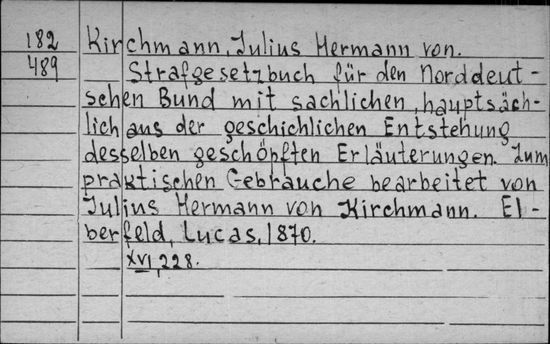 182 Kirchmann, Julius Hermann von.
489 Strafgesetzbuch für den Norddeut-
schen Bund mit sachlichen, hauptsäch-
lich aus der geschichlichen Entstehung
desselben geschöpften Erläuterungen. Zum
praktischen Gebrauche bearbeitet von
Julius Hermann von Kirchmann. El-
berfeld, Lucas, 1870.
XVI, 228.